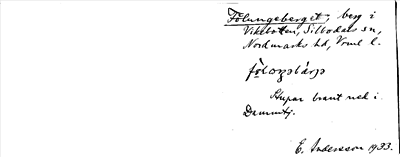 Fölungeberget, berg i
Vikbotten, Silbodals sn,
Nordmarks hd, Vrml l.
Stupar brant ned i
Dammtj.
E. Andersson 1933.